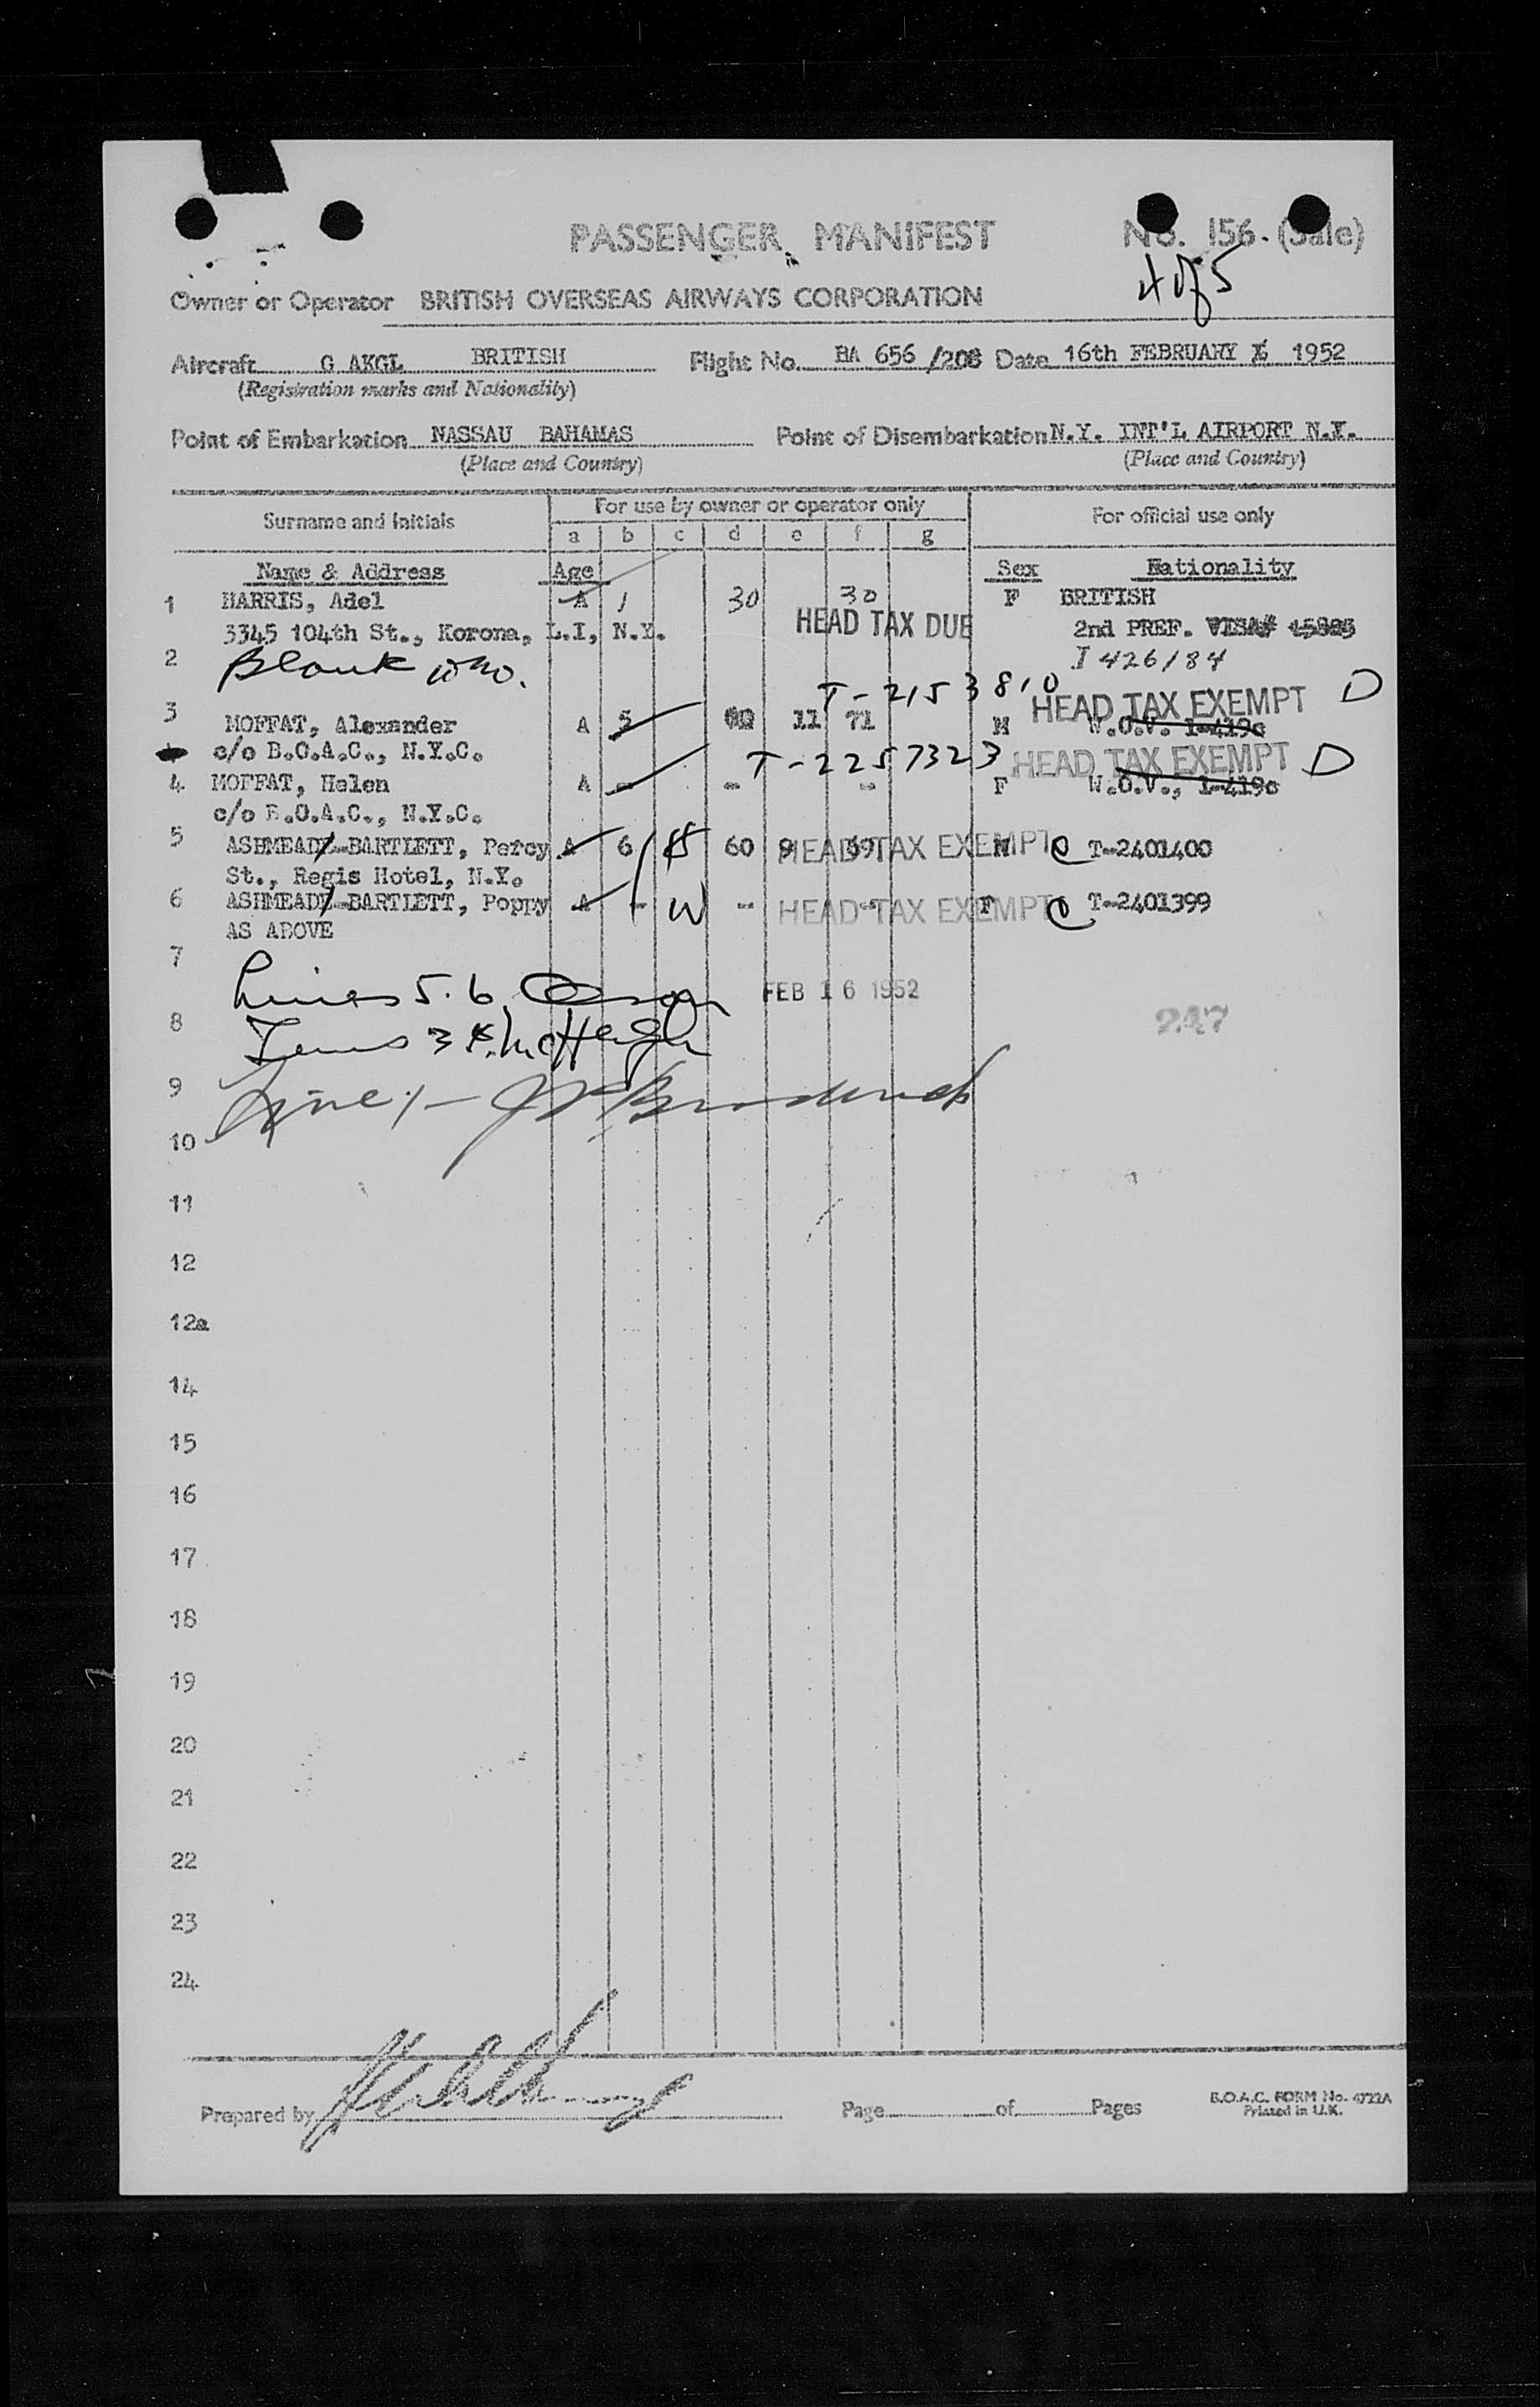 PASSENGER MANIFEST No. 156. (Sale)
4 of 5
Owner or Operator BRITISH OVERSEAS AIRWAYS CORPORATION
Aircraft G AKGL BRITISH Flight No. BA 656 /208 Date 16th FEBRUARY 1952
(Registration marks and Nationality)
Point of Embarkation NASSAU BAHAMAS Point of Disembarkation N.Y. INT'L AIRPORT N.Y.
(Place and Country) (Place and Country)
Surname and Initials For use by owner or operator only For official use only
a b c d e f g
Name & Address Age Sex Nationality
1 HARRIS, Adel A 1 30 30 F BRITISH
3345 104th St., Korona, L.I, N.Y. HEAD TAX DUE 2nd PREF. VISA#
2 Blank I 426184
T-2153810 HEAD TAX EXEMPT D
3 MOFFAT, Alexander A 5 11 71 M W.O.V. 1-419c
c/o B.O.A.C., N.Y.C. T-2257323 HEAD TAX EXEMPT D
4 MOFFAT, Helen A - - - F W.O.V., 1-419c
c/o B.O.A.C., N.Y.C.
5 ASHMEAD-BARTLETT, Percy A 6 H 60 9 69 HEAD TAX EXEMPT M C T-2401400
St., Regis Hotel, N.Y.
6 ASHMEAD-BARTLETT, Poppy A - W -- -- HEAD TAX EXEMPT F C T-2401399
AS ABOVE
7
Lines 5.6 FEB 16 1952
8 247
3 4
9 Line 1 -
10
11
12
12a
14
15
16
17
18
19
20
21
22
23
24
Prepared by Page of Pages B.O.A.C. FORM No. 4722A
Printed in U.K.